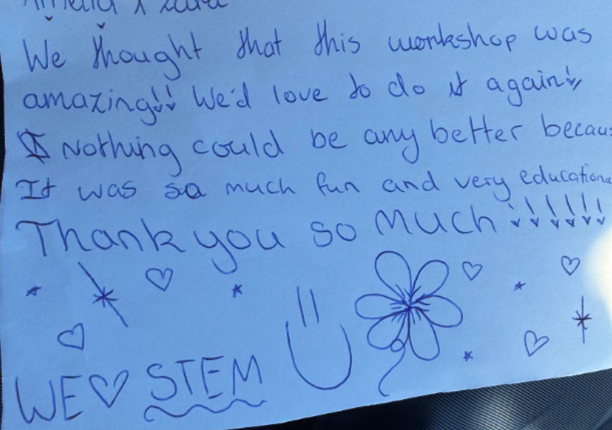 We thought that this workshop was
amazing!! We'd love to do it again!,
Nothing could be any better becau
It was so much fun and very educationa
Thank you so much !!!!!!
WE ♡ STEM